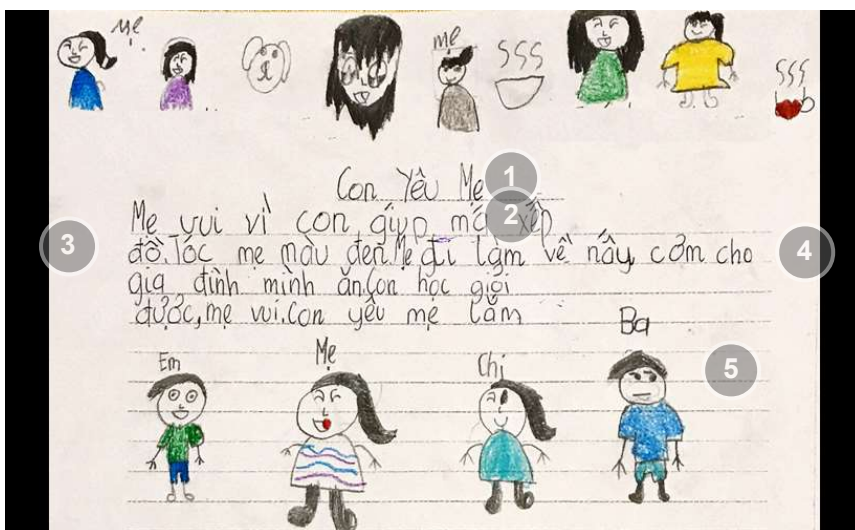 Mẹ
mẹ
Con Yêu Mẹ
1
Mẹ vui vì con giúp má xếp
2
đồ. Tóc mẹ màu đen. Mẹ đi làm về nấy cơm cho
3
4
gia đình mình ăn. Con học giỏi
được, mẹ vui. Con yêu mẹ lắm
Ba
Em
Mẹ
Chị
5